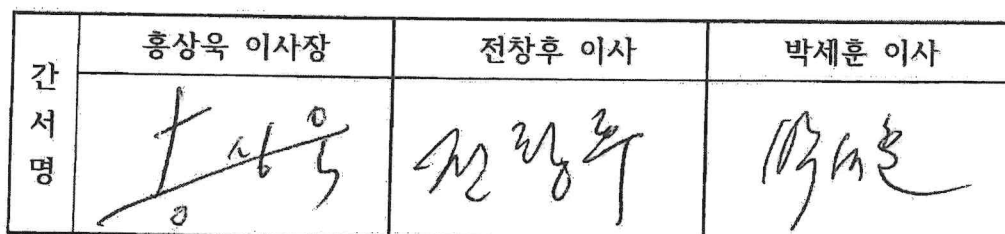 간서명
홍상욱 이사장 전창후 이사 박세훈 이사
홍상욱 전창후 박세훈